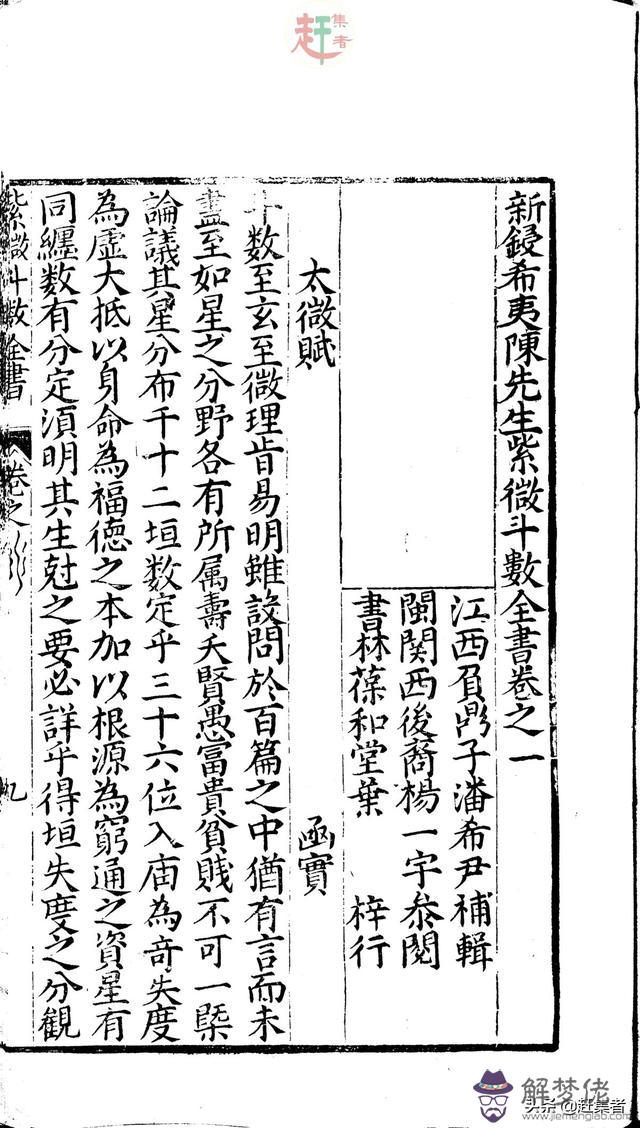 赶集者
新鋟希夷陳先生紫微斗數全書卷之一
江西負鼎子潘希尹補輯
閩関西後裔楊一宇叅閱
書林葆和堂葉　梓行
太微賦　函實
斗数至玄至微理肯易明雖設問於百篇之中猶有言而未
盡至如星之分野各有所属壽夭賢愚富貴貧賤不可一槩
論議其星分布千十二垣数定乎三十六位入庙為奇失度
為虚大抵以身命為福德之本加以根源為窮通之資星有
同纏数有分定湏明其生尅之要必詳乎得垣失度之分觀
紫微斗數全書　卷之
九
解梦佬
www.jiemenglab.com
头条@赶集者